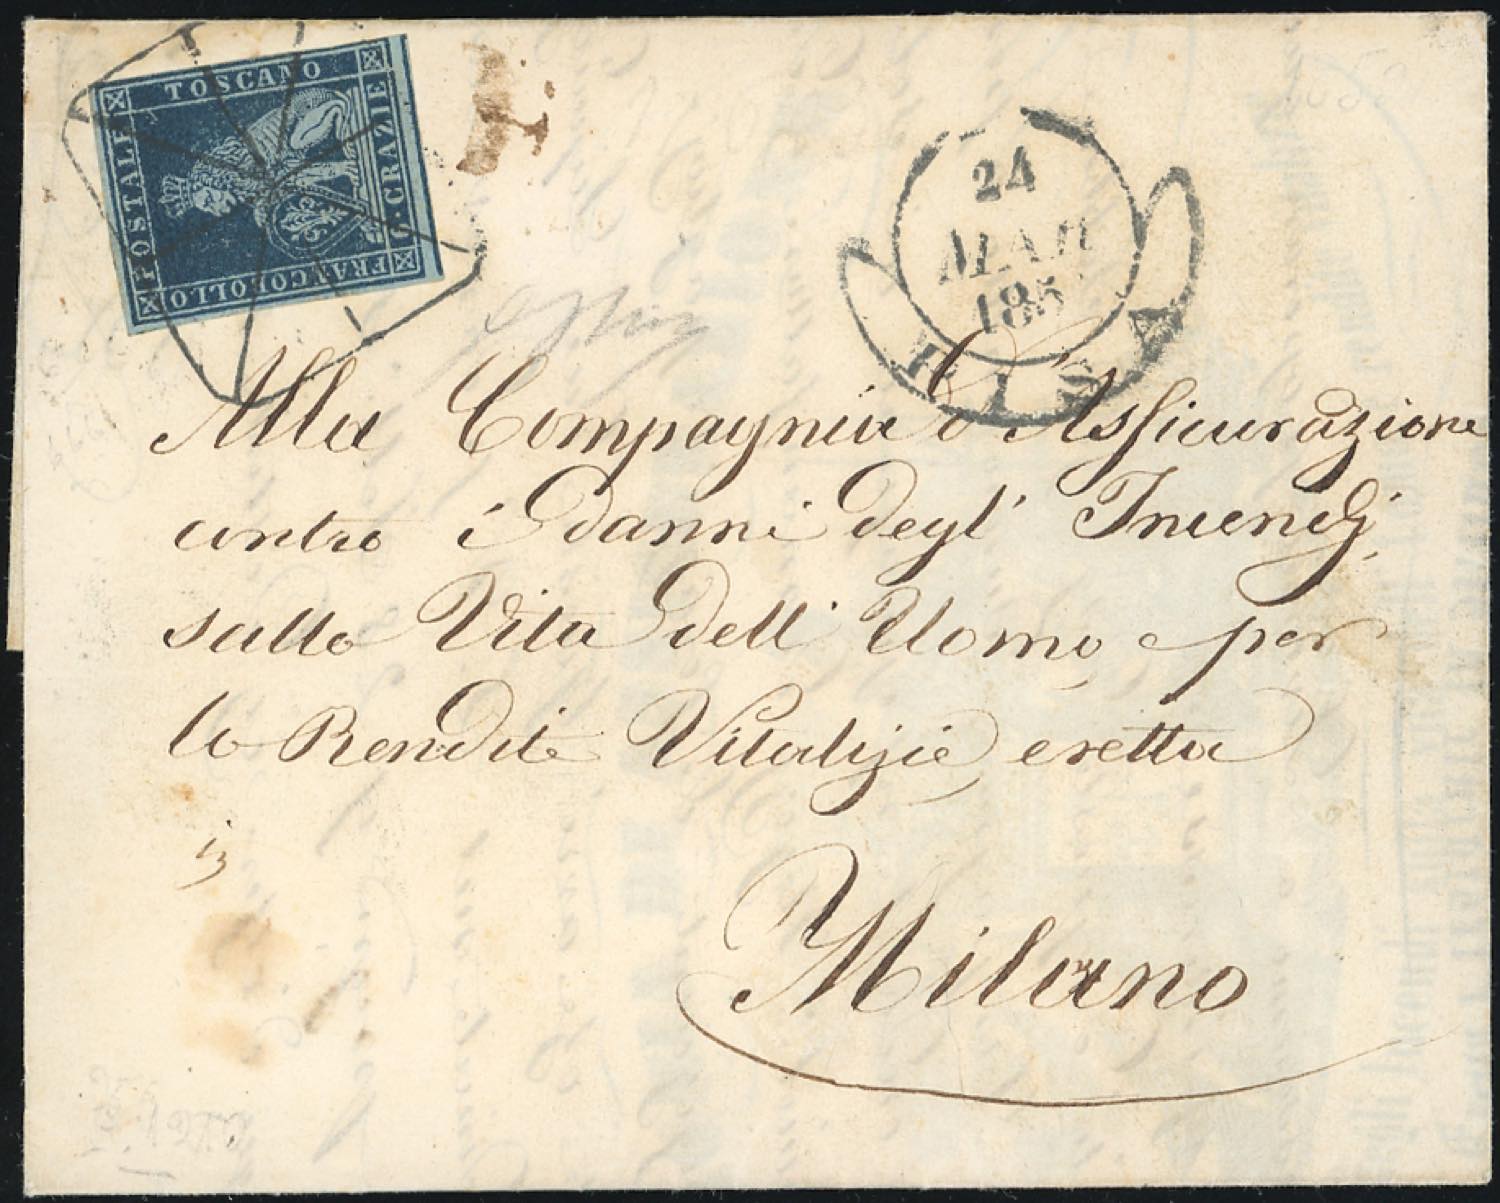 TOSCANO
FRANCOBOLLO
POSTALE
6. CRAZIE
24
MAR
185
PISA
Alla Compagnia d'Assicurazione
contro i danni degl' Incendj,
sulla Vita dell' Uomo, e per
le Rendite Vitalizie, eretta
in
Milano